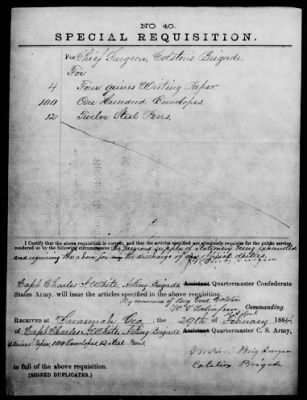 NO. 40.
SPECIAL REQUISITION.
For Chief Surgeon Colston's Brigade
For
4 Four quires Writing Paper
100 One Hundred Envelopes
12 Twelve Steel Pens.
I Certify that the above requisition is correct, and that the articles specified are absolutely requisite for the public service,
rendered so by the following circumstances: My previous supply of Stationery being exhausted
and requiring the above for the discharge of my official duties.
Surgeon
Capt Charles S. White, Acting Brigade Assistant Quartermaster Confederate
States Army, will issue the articles specified in the above requisition.
By command of Brig Genl Colston
Commanding.
Received at Savannah Geo, the 20th of February 1864
of Capt Charles S. White, Acting Brigade Assistant Quartermaster C. S. Army,
4 Quires Paper 100 Envelopes 12 Steel Pens
in full of the above requisition.
(SIGNED DUPLICATES.)
Brig Surgeon
Colston's Brigade